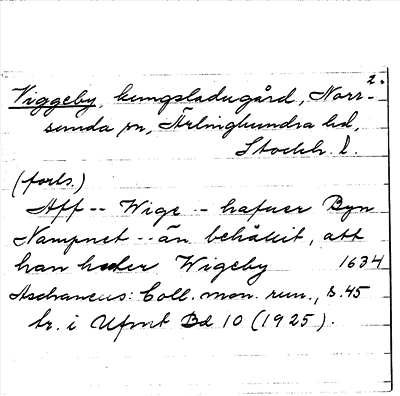 2.
Viggeby, kungsladugård, Norr-
sunda sn, Ärlinghundra hd,
Stockh. l.
(forts.)
Aff -- Wige -- hafuer Byn
Nampnet -- än behållit, att
han heder Wigeby 1634
Aschaneus: Coll. mon. run., s. 45
tr. i Ufmt Bd 10 (1925).